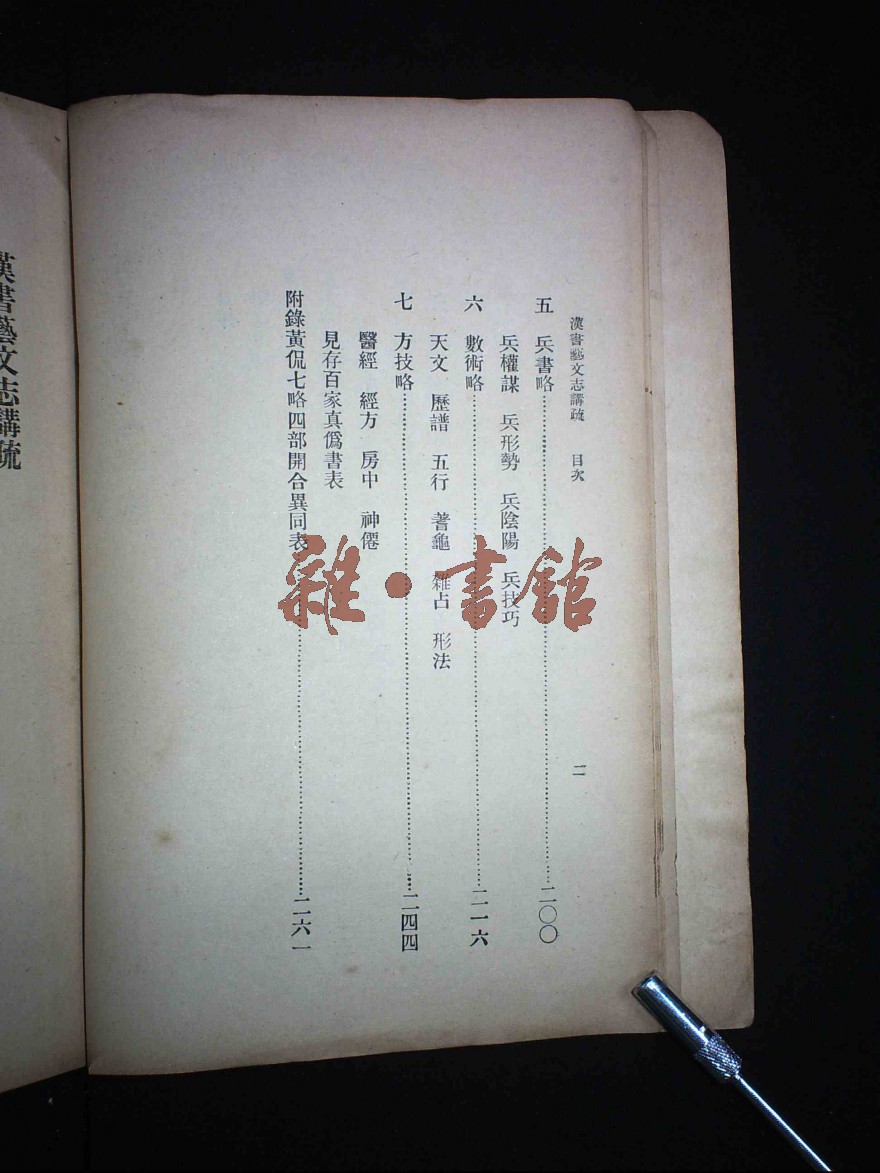 漢書藝文志講疏 目次 二
五 兵書略……二〇〇
兵權謀 兵形勢 兵陰陽 兵技巧
六 數術略……二一六
天文 歷譜 五行 蓍龜 雜占 形法
七 方技略……二四四
醫經 經方 房中 神僊
見存百家真僞書表
附錄黃侃七略四部開合異同表……二六一
漢書藝文志講疏
雜·書館